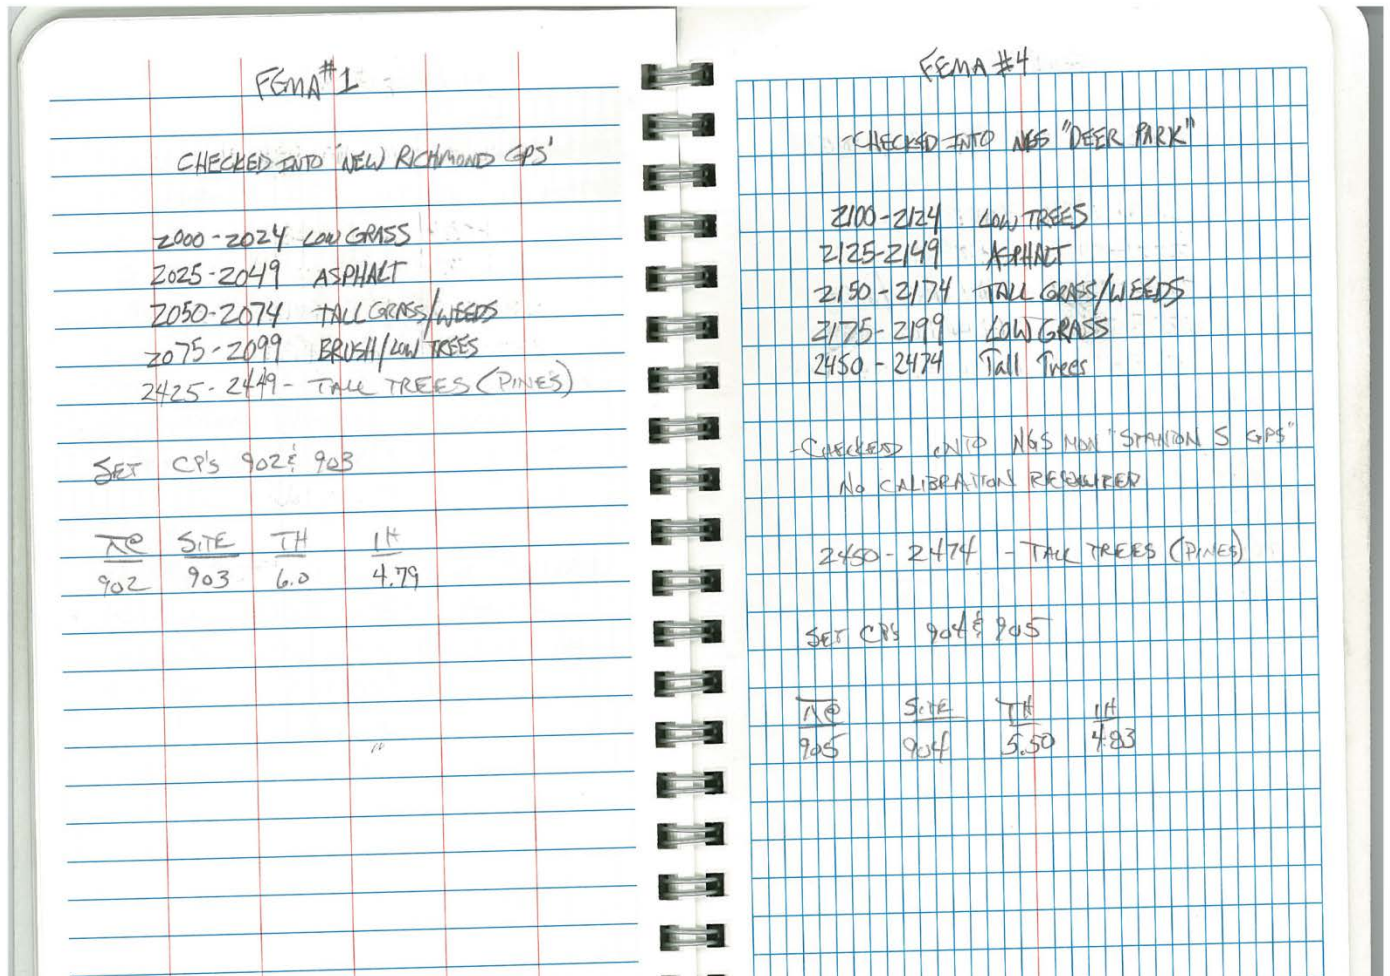 FEMA #1
CHECKED INTO 'NEW RICHMOND GPS'
2000-2024 LOW GRASS
2025-2049 ASPHALT
2050-2074 TALL GRASS/WEEDS
2075-2099 BRUSH/LOW TREES
2425-2449 - TALL TREES (PINES)
SET CP'S 902 & 903
⊼@ SITE TH IH
902 903 6.0 4.79
FEMA #4
-CHECKED INTO NGS "DEER PARK"
2100-2124 LOW TREES
2125-2149 ASPHALT
2150-2174 TALL GRASS/WEEDS
2175-2199 LOW GRASS
2450-2474 Tall Trees
-CHECKED INTO NGS MON "STANTON S GPS"
NO CALIBRATION REQUIRED
2450-2474 - TALL TREES (PINES)
SET CP'S 904 & 905
⊼@ SITE TH IH
905 904 5.50 4.83